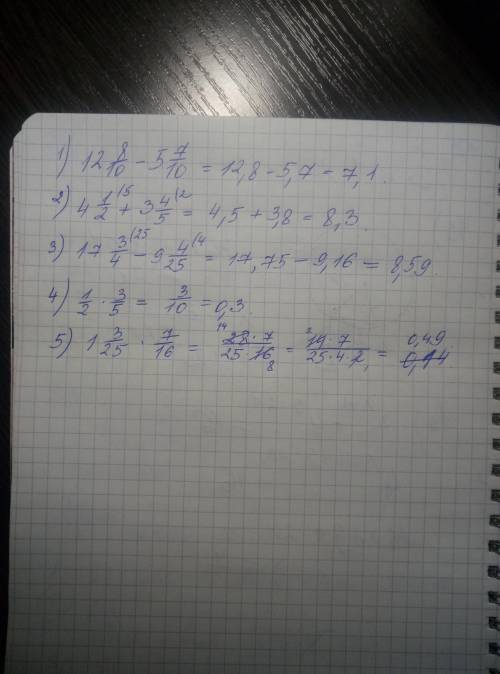 1) 12 8/10 - 5 7/10 = 12,8 - 5,7 = 7,1.
2) 4 1/2 (5 + 3 4/5 (2 = 4,5 + 3,8 = 8,3.
3) 17 3/4 (25 - 9 4/25 (4 = 17,75 - 9,16 = 8,59.
4) 1/2 · 3/5 = 3/10 = 0,3.
5) 1 3/25 · 7/16 = 14 28 · 7 / 25 · 16 8 = 14 · 7 / 25 · 4 · 2 1 = 0,49 0,14